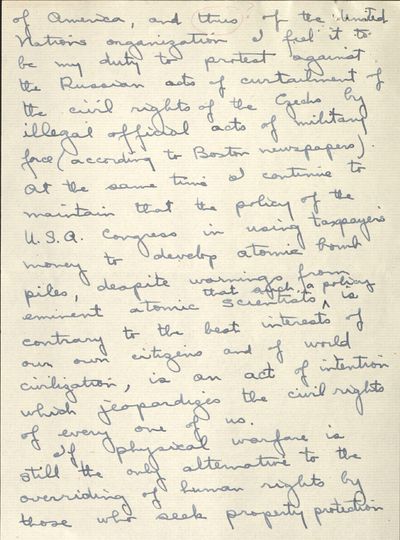 of America, and thus of the United
Nations organization I feel it to
be my duty to protest against
the Russian acts of curtailment of
the civil rights of the Czechs by
illegal official acts of military
force (according to Boston newspapers).
At the same time I continue to
maintain that the policy of the
U.S.A. Congress in using taxpayers
money to develop atomic bomb
piles, despite warnings from
eminent atomic scientists ^ that such a policy is
contrary to the best interests of
our own citizens and of world
civilization, is an act of intention
which jeopardizes the civil rights
of every one of us.
If physical warfare is
still the only alternative to the
overriding of human rights by
those who seek property protection